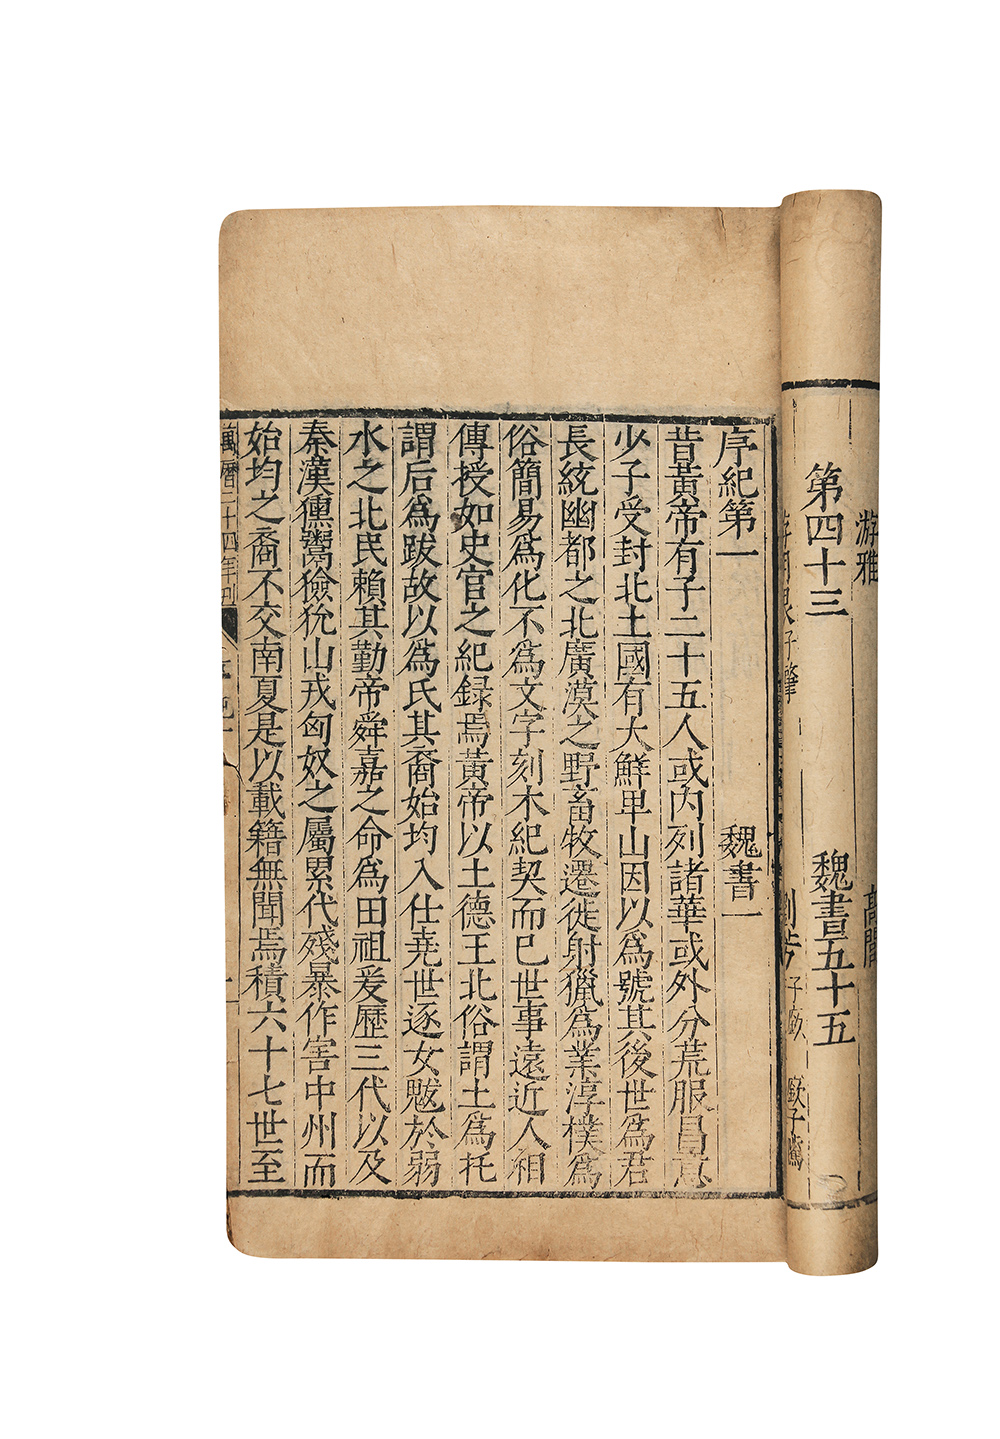 游雅 高閭
第四十三 魏書五十五
序紀第一 魏書一
昔黃帝有子二十五人或內列諸華或外分荒服昌意
少子受封北土國有大鮮卑山因以為號其後世為君
長統幽都之北廣漠之野畜牧遷徙射獵為業淳樸為
俗簡易為化不為文字刻木紀契而已世事遠近人相
傳授如史官之紀録焉黃帝以土德王北俗謂土為托
謂后為跋故以為氏其裔始均入仕堯世逐女魃於弱
水之北民賴其勤帝舜嘉之命為田祖爰歷三代以及
秦漢獯鬻獫狁山戎匈奴之屬累代殘暴作害中州而
始均之裔不交南夏是以載籍無聞焉積六十七世至
萬曆二十四年刊